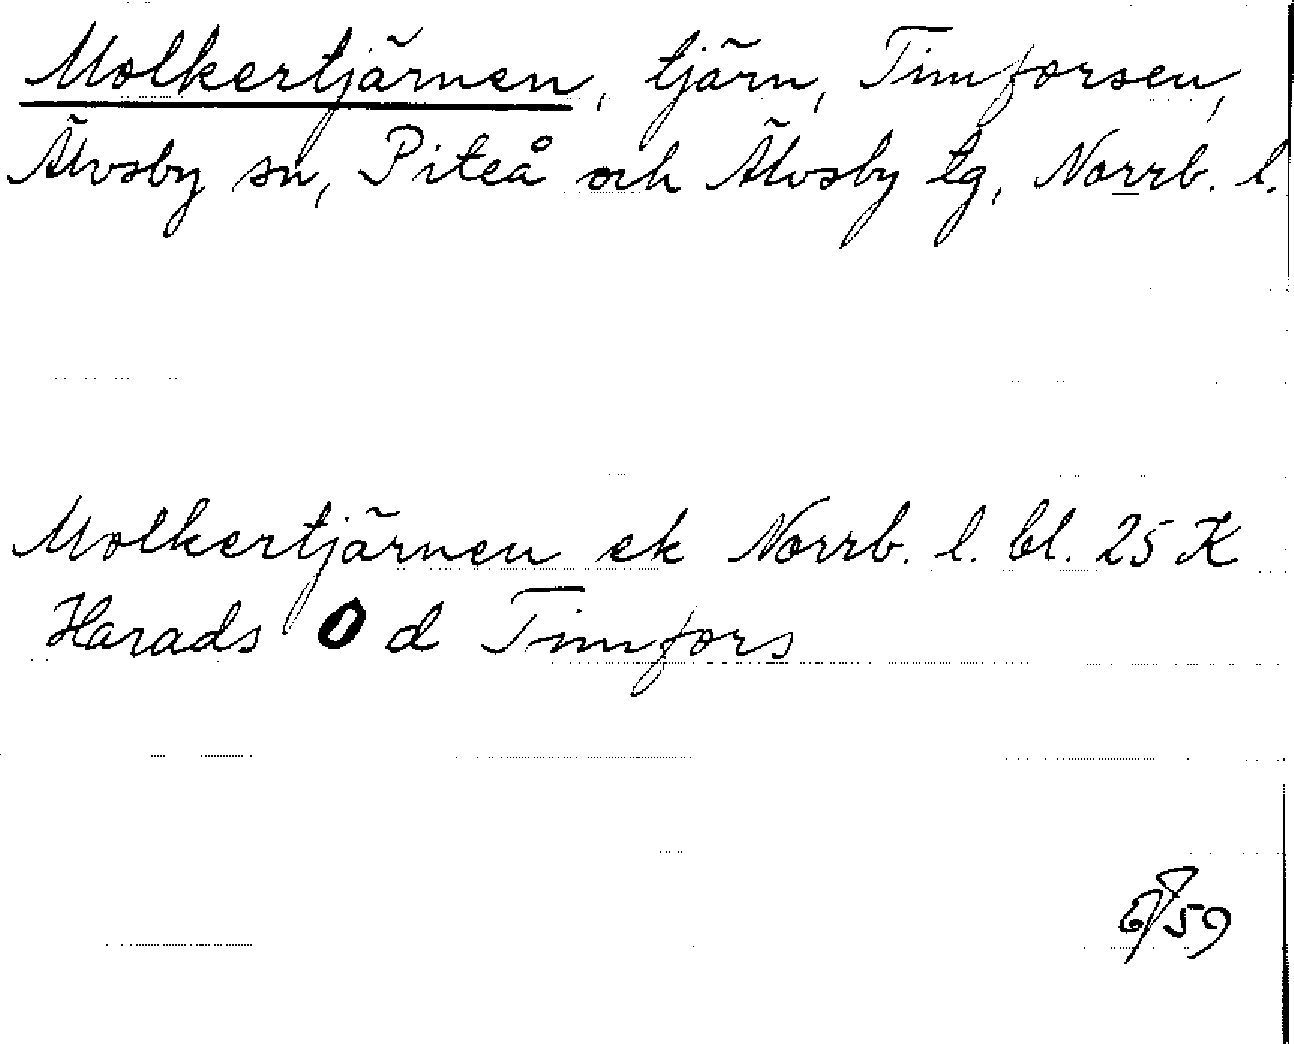 Molkertjärnen, tjärn, Timforsen,
Älvsby sn, Piteå och Älvsby tg, Norrb. l.
Molkertjärnen ek Norrb. l. bl. 25 K
Harads O d Timfors
59